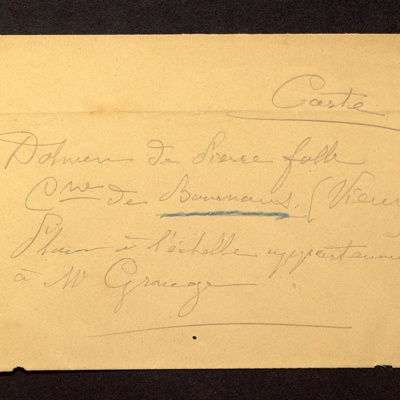 Carte
Dolmen de Pierre folle
Cne de Bournand. (Vien
Plan à l'échelle appartenan
à Mr Grange